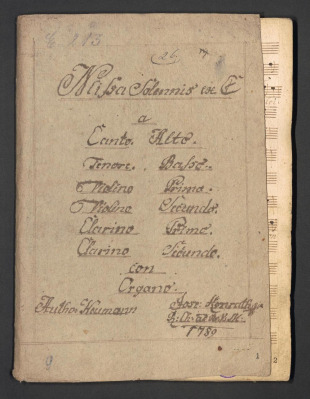 C 113
26
Missa Solennis ex C
a
Canto. Alto.
Tenore. Basso.
Violino Primo.
Violino Secundo.
Clarino Primo.
Clarino Secundo.
con
Organo.
Autho: Neumann
1789
9
1
2